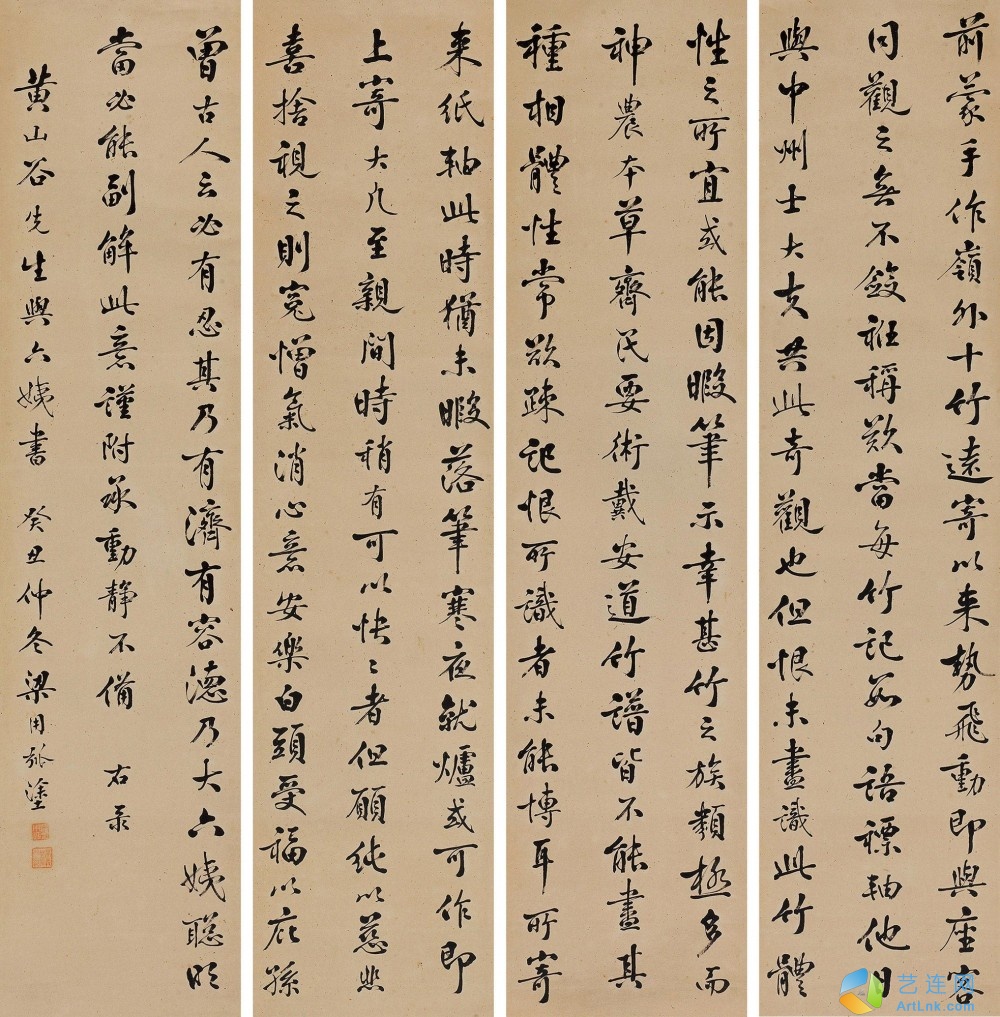 前蒙手作嶺外十竹遠寄以来勢飛動即與座客
同觀之無不斂衽稱歎當每竹記數句語褾軸他日
與中州士大夫共此奇觀也但恨未盡識此竹體
性之所宜或能因暇筆示幸甚竹之族類極多而
神農本草齊民要術戴安道竹譜皆不能盡其
種相體性常欲疎記恨所識者未能博耳所寄
来紙軸此時猶未暇落筆寒夜就爐或可作即
上寄大凡至親間時稍有可以怏〻者但願純以慈悲
喜捨視之則冤憎氣消心意安樂白頭受福以庇孫
曾古人云必有忍其乃有濟有容德乃大六姨聡明
當必能副解此意謹附承動静不備 右录
黄山谷先生與六姨書 癸丑仲冬梁用弧塗
艺连网
ArtLnk.com